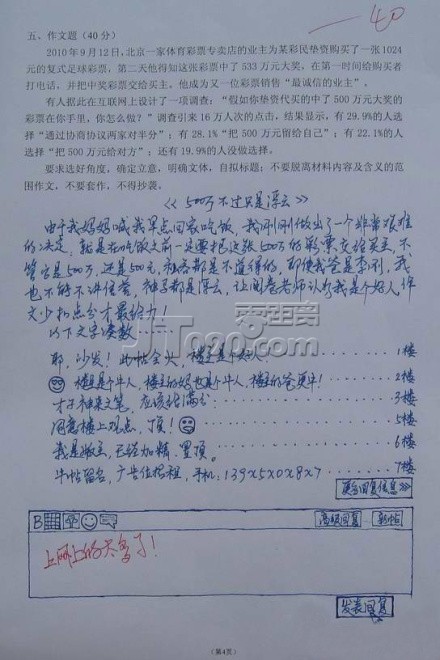 —40
五、作文题(40分)
2010年9月12日,北京一家体育彩票专卖店的业主为某彩民垫资购买了一张1024
元的复式足球彩票,第二天他得知这张彩票中了533万元大奖,在第一时间给购买者
打电话,并把中奖彩票交给买主,他成为又一位彩票销售“最诚信的业主”。
有人据此在互联网上设计了一项调查:“假如你垫资代买的中了500万元大奖的
彩票在你手里,你怎么做?”调查引来16万人次的点击,结果显示,有29.9%的人选
择“通过协商协议两家对半分”;有28.1%“把500万元留给自己”;有22.1%的人
选择“把500万元给对方”;还有19.9%的人没做选择。
要求选好角度,确定立意,明确文体,自拟标题;不要脱离材料内容及含义的范
围作文,不要套作,不得抄袭。
《500万不过只是浮云》
由于我妈妈喊我早点回家吃饭,我刚刚做出了一个非常艰难
的决定,就是在吃饭之前一定要把这张500万的彩票交给买主,不
管它是500万,还是500元,私吞都是不道得的,即使我爸是李刚,我
也不能不讲信誉,神马都是浮云,让阅卷老师认为我是个好人,作
文少扣点分才最给力!
以下文字凑数……
耶,沙发!此帖金头,楼主是个好人 1楼
楼主是个牛人,楼主的妈也是个牛人,楼主的爸更牛! 2楼
才子神来之笔,应该给满分 3楼
同意楼上观点,顶! 5楼
我是版主,已经加精,置顶。 6楼
牛帖留名,广告位招租,手机:139x5x0x8x7 7楼
更多回复信息>>
B 高级回复 新帖
上网上的太多了!
发表回复
(第4页)
JTJ90.com 零距离